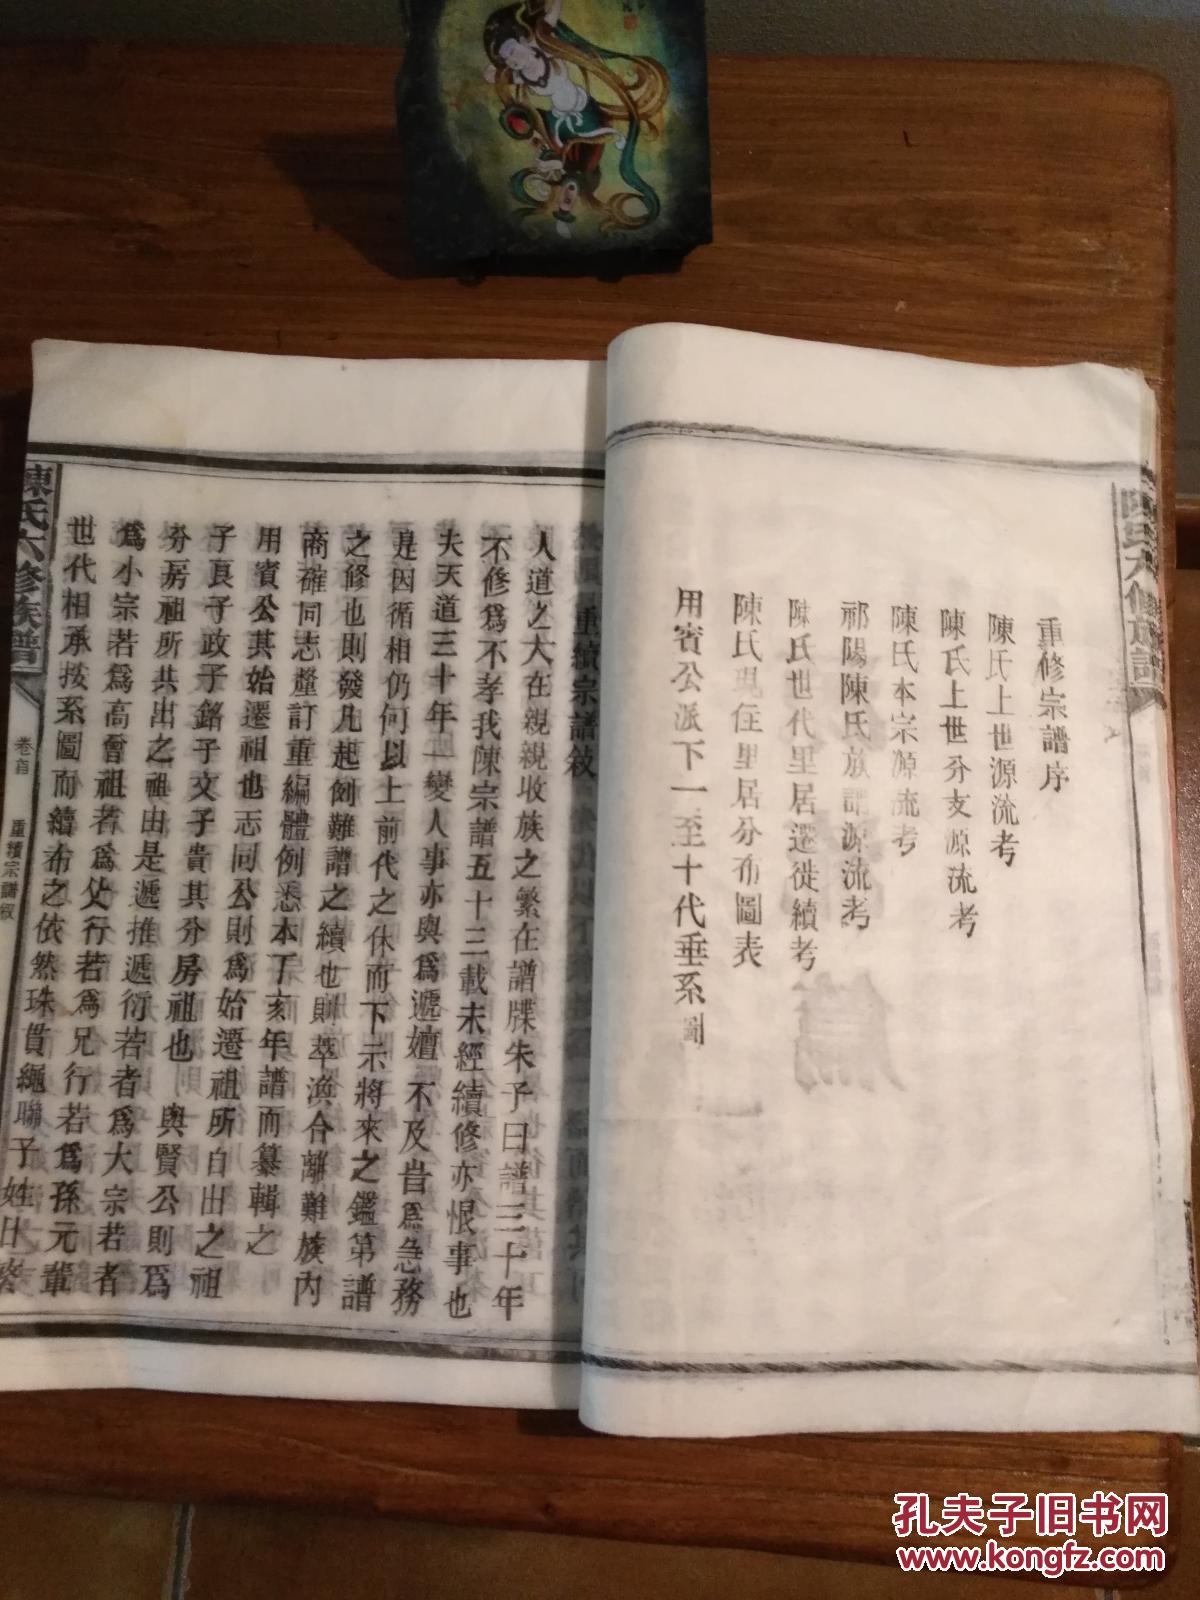 陳氏六修族譜
重修宗譜序
陳氏上世源流考
陳氏上世分支源流考
陳氏本宗源流考
祁陽陳氏族譜源流考
陳氏世代里居遷徙續考
陳氏現住里居分布圖表
用賓公派下一至十代垂系圖
重續宗譜敘
人道之大在親親收族之繁在譜牒朱子曰譜三十年
不修爲不孝我陳宗譜五十三載未經續修亦恨事也
夫天道三十年一變人事亦與爲遞嬗不及旹爲急務
是因循相仍何以上前代之休而下示將來之鑑第譜
之修也則發凡起例難譜之續也則萃渙合離難族內
商確同志釐訂重編體例悉本丁亥年譜而纂輯之
用賓公其始遷祖也志同公則爲始遷祖所自出之祖
子良子政子銘子文子貴其分房祖也與賢公則爲
分房祖所共出之祖由是遞推遞衍若者爲大宗若者
爲小宗若爲高曾祖若爲父行若爲兄行若爲孫元輩
世代相承按系圖而續布之依然珠貫繩聯子姓日繁
陳氏六修族譜
卷首
重續宗譜敘
孔夫子旧书网
www.kongfz.com